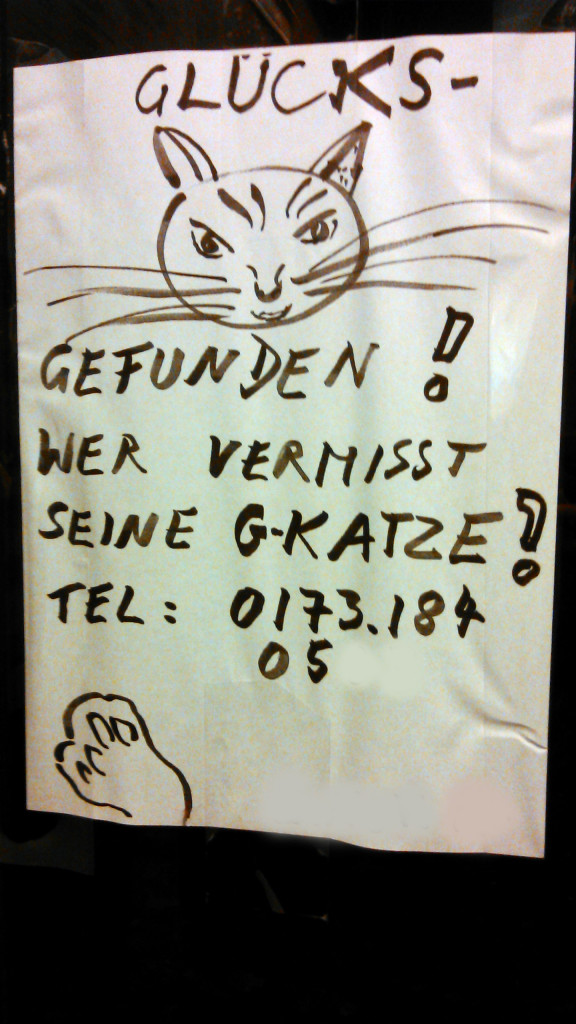 GLÜCKS-
GEFUNDEN!
WER VERMISST
SEINE G-KATZE!
TEL: 0173.184
05